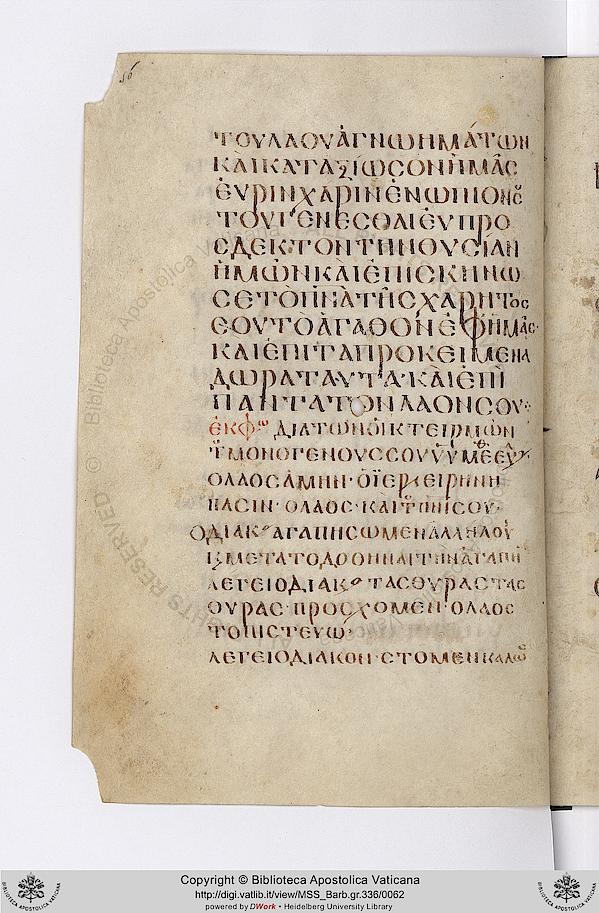 56
ΤΟΥΛΑΟΥἈΓΝΩΗΜΆΤΩΝ
ΚΑῚΚΑΤΑΞΊΩΣΟΝἩΜᾶΣ
ΕΥΡΙΝΧΆΡΙΝἘΝΩΠΙΟΝΣ
ΤΟΥΓΕΝΕΣΘΑΙΕΥΠΡΟ
ΣΔΕΚΤΟΝΤΗΝΘΥΣΙΑΝ
ἩΜΩ͂ΝΚΑῚἘΠΙΣΚΗΝΩ
ΣΕΤῸΠΝΑΤῆΣΧΆΡΗΤΟΣ
ΣΟΥΤῸἈΓΑΘΟΝἘΦἩΜᾶΣ·
ΚΑΙἘΠΙΤΑΠΡΟΚΕΙΜΕΝΑ
ΔΩ͂ΡΑΤΑΥΤΑ·ΚΑῚἘΠῚ
ΠΑΝΤΑΤΟΝΛΑΟΝΣΟΥ·
ἘΚΦΩ ΔΙΑΤΩ͂ΝΟἸΚΤΕΙΡΜΩ͂Ν
ΤΟΥΜΟΝΟΓΕΝΟΥΣΣΟΥΥΥΜΕΘΕΥ
ΟΛΑΟΣἈΜΗΝ·ΟΪΕΡ ΕΙΡΗΝΗ
ΠΑΣΙΝ·ΟΛΑΟΣ·ΚΑΙΤΩΠΝΙΣΟΥ·
ΟΔΙΑΚ ΑΓΑΠΗΣΩΜΕΝΑΛΛΗΛΟΥ
Κ ΜΕΤΑΤΟΔΟΘΗΝΑΙΤΗΝΑΓΑΠΗ
ΛΕΓΕΙΟΔΙΑΚ ΤΑΣΘΥΡΑΣΤΑΣ
ΘΥΡΑΣ·ΠΡΟΣΧΟΜΕΝ·ΟΛΑΟΣ
ΤΟΠΙΣΤΕΥΩ·
ΛΕΓΕΙΟΔΙΑΚΟΝ·ΣΤΟΜΕΝΚΑΛΩ
© Biblioteca Apostolica Vaticana
ALL RIGHTS RESERVED
Copyright © Biblioteca Apostolica Vaticana
http://digi.vatlib.it/view/MSS_Barb.gr.336/0062
powered by DWork • Heidelberg University Library